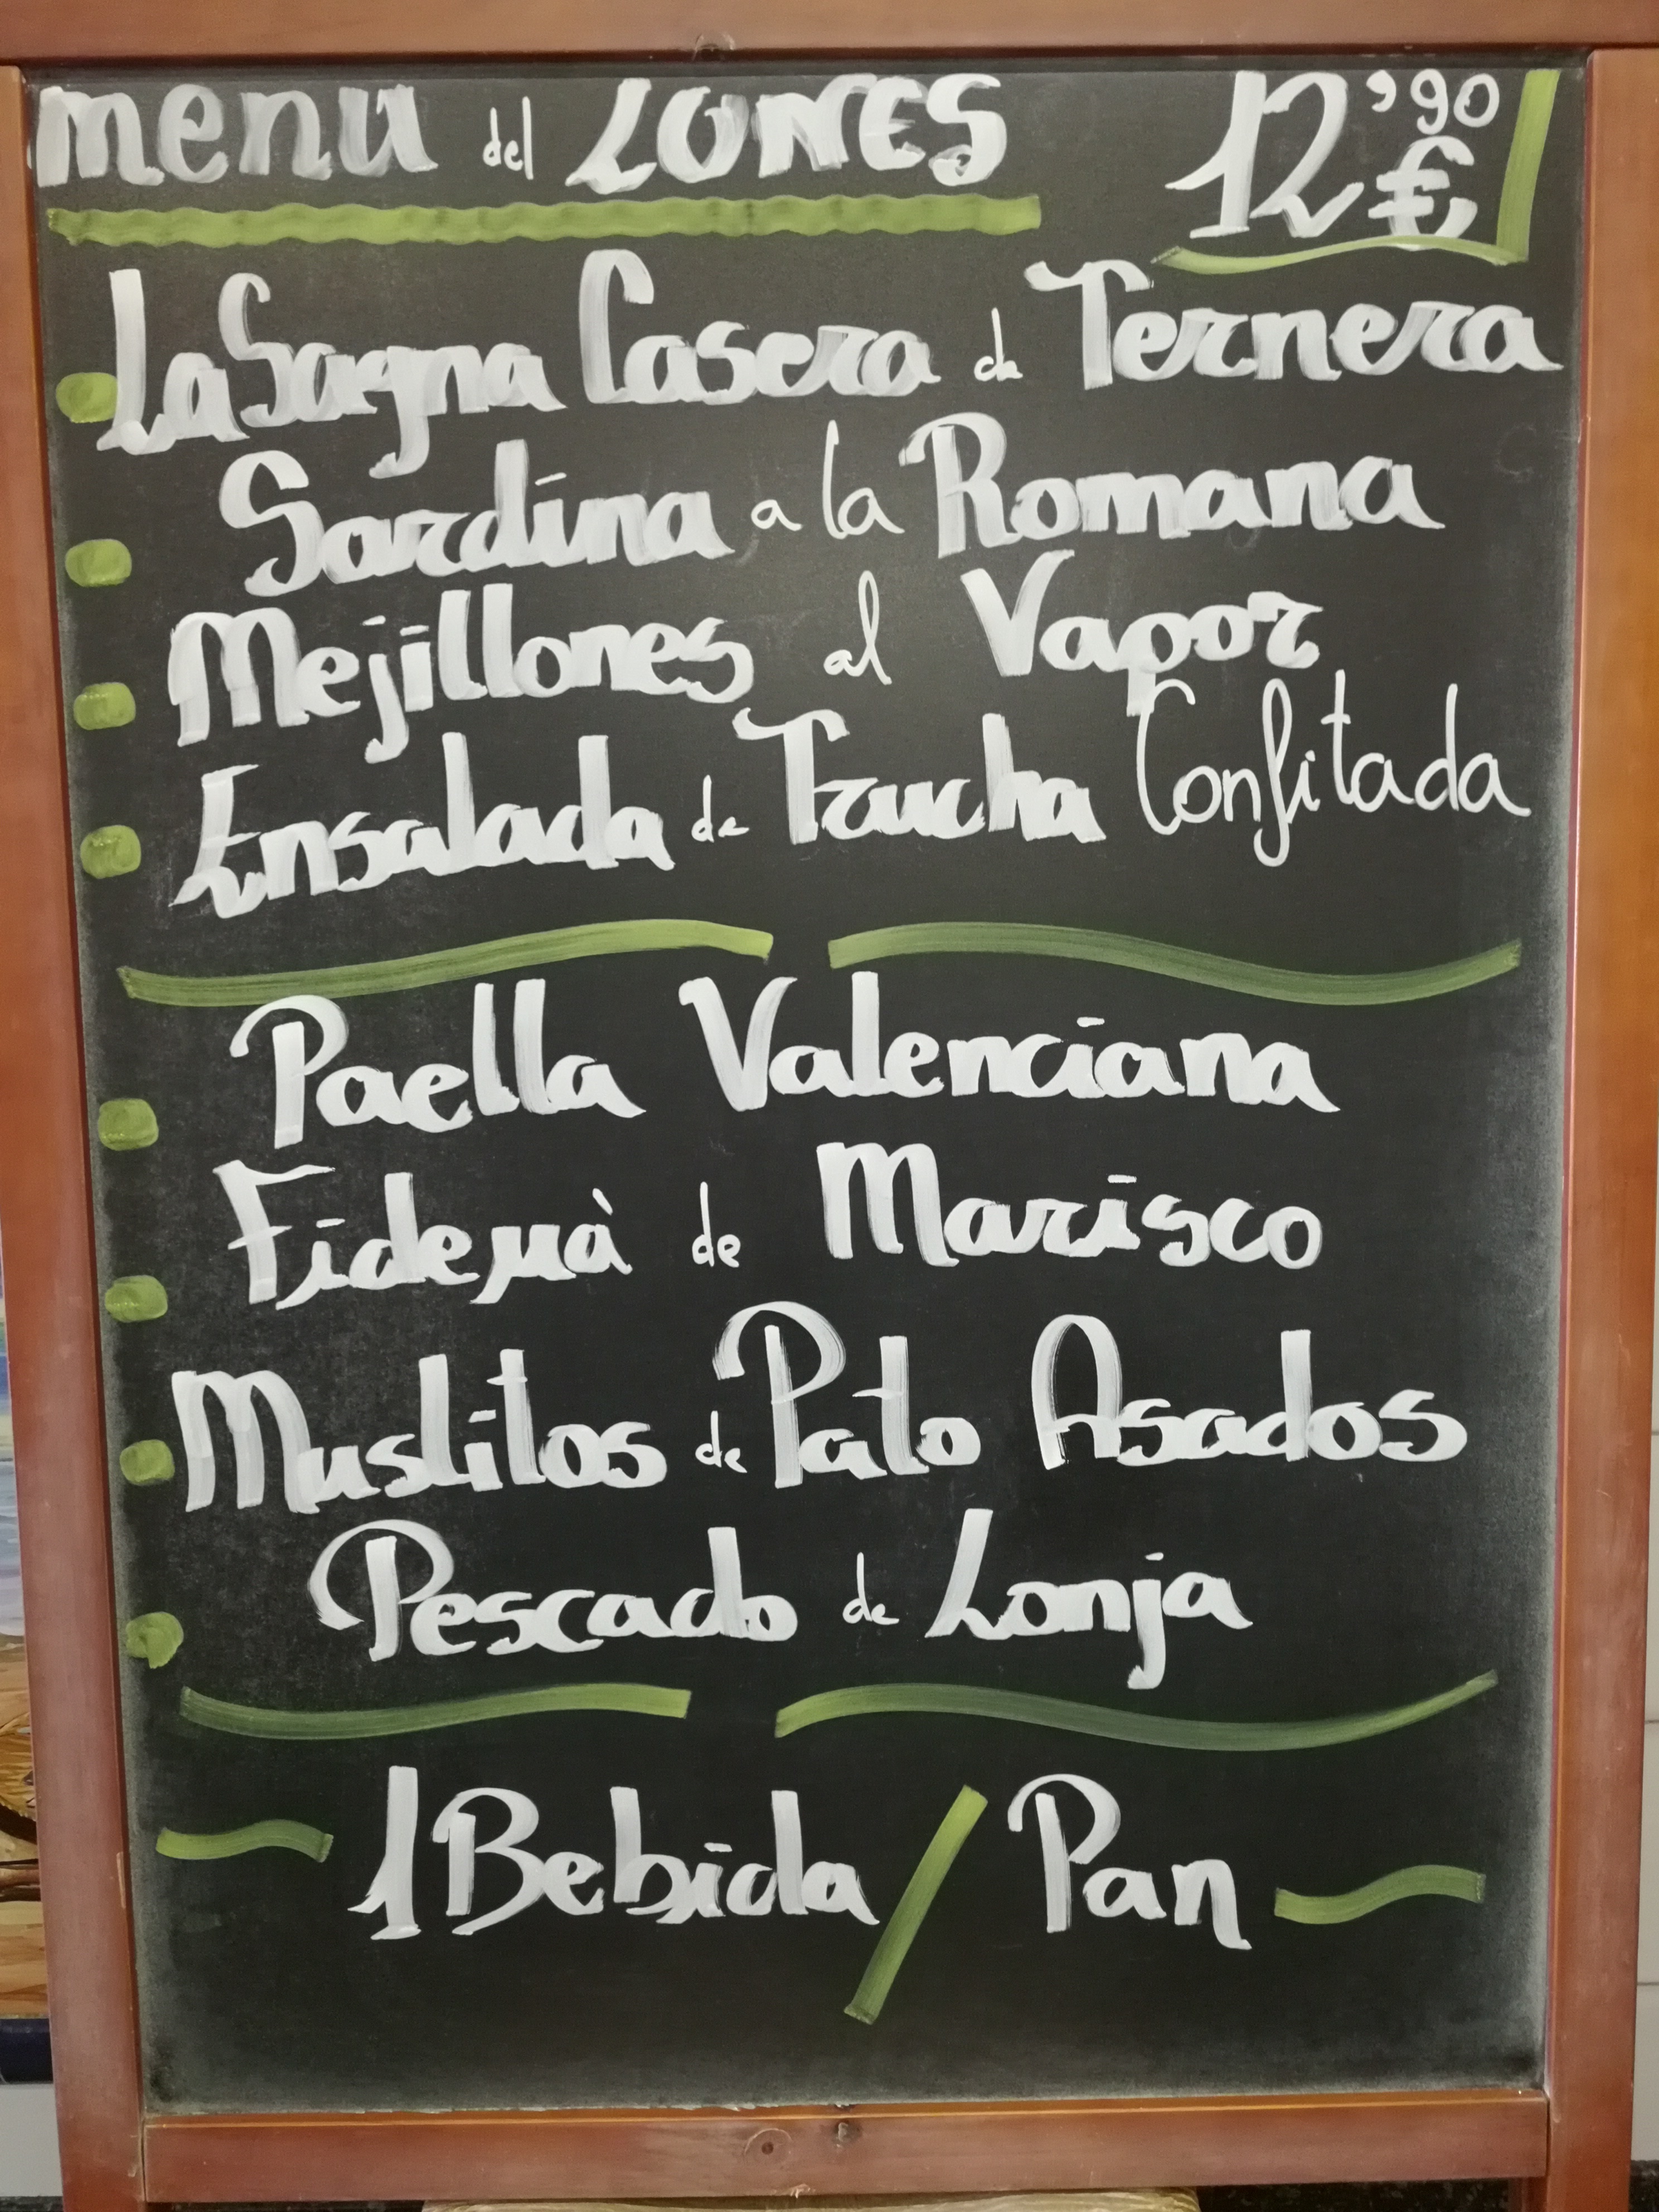 menu del LUNES 12'90 €
Lasagna Casera de Ternera
Sardina a la Romana
Mejillones al Vapor
Ensalada de Trucha Confitada
Paella Valenciana
Fideuà de Marisco
Muslitos de Pato Asados
Pescado de Lonja
1 Bebida / Pan